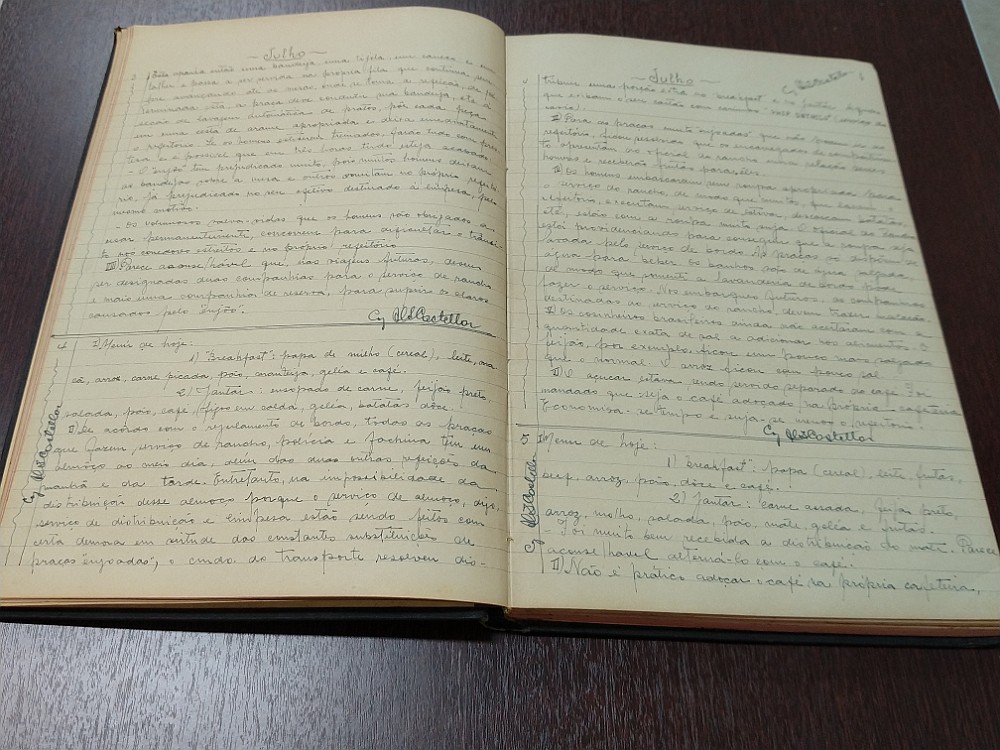 ~ Julho ~
talher e passa a ser servido na própria fila que continua sem-
pre avançando até as mesas, onde se toma a refeição, em pé.
Terminada esta, a praça deve conduzir sua bandeja, até a
secção de lavagem automática de pratos, pôr cada peça
em uma cesta de arame apropriada e deixa imediatamente
o refeitório. Se os homens estiverem treinados, farão tudo com pres-
teza e é possível que em três horas tudo esteja acabado.
- O enjôo tem prejudicado muito, pois muitos homens deixam
as bandejas sobre a mesa e outros vomitam no próprio refeitó-
rio. Já prejudicada no seu efetivo destinado à limpesa, pelo
mesmo motivo.
- Os volumosos salva-vidas que os homens são obrigados a
usar permanentemente, concorrem para dificultar o trânsi-
to nos corredores estreitos e no próprio refeitório.
III) Parece aconselhável que, nas viagens futuras, devem
ser designadas duas companhias para o serviço de rancho
e mais uma companhia de reserva, para suprir os claros
causados pelo "enjôo".
4 I) Menú de hoje:
1) "Breakfast": papa de milho (cereal), leite, ma-
çã, arroz, carne picada, pão, manteiga, geléia e café.
2) Jantar: ensopado de carme, feijão preto,
salada, pão, café, figos em calda, geléia, batatas dôce.
II) De acôrdo com o regulamento de bordo, todas as praças
que fazem serviço de rancho, polícia e fachina têm um
almôço ao meio dia, além das duas outras refeições da
manhã e da tarde. Entretanto, na impossibilidade da
distribuição desse almoço porque o serviço de almoço, digo,
serviço de distribuição e limpesa estão sendo feitos com
certa demora em virtude das constantes substituições de
praças "enjoadas", o cmdo. do transporte resolveu dis-
~ Julho ~
tribuir uma porção extra no "breakfast" e no jantar àqueles
que exibam o seu cartão com carimbo
II) Para as praças muito enjoadas que não possam ir ao
refeitório, ficou resolvido que os encarregados de compartimen-
to apresentem ao oficial de rancho uma relação desses
homens e receberão frutas para eles.
III) Os homens embarcaram sem roupa apropriada para
o serviço do rancho, de modo que muitos, que fazem
refeitório, executam serviço de
etc, estão com a roupa muito suja. O oficial do rancho
está providenciando para conseguir que a roupa seja
lavada pelo serviço de bordo. As praças só dispõem de
água para beber. Os banhos são de água salgada,
de modo que somente a lavanderia de bordo pode
fazer o serviço. Nos embarques futuros, as companhias
destinadas ao serviço do rancho, devem trazer macacão.
Os cosinheiros brasileiros ainda não acertaram com a
quantidade exata de sal a adicionar nos alimentos. O
feijão, por exemplo, ficou um pouco mais salgado
que o normal. O arroz ficou com pouco sal.
O açucar estava sendo servido separado do café. Foi
mandado que seja o café adoçado na própria cafeteira.
Economisa-se tempo e suja-se menos o refeitório.
5 I) Menu de hoje:
1) "Breakfast": papa (cereal), leite, frutas,
beef, arroz, pão, dôce e café.
2) Jantar: carne assada, feijão preto
arroz, molho, salada, pão, mate, geléia e frutas.
- Foi muito bem recebida a distribuição do mate. Parece
aconselhavel alterná-lo com o café.
II) Não é prático adoçar o café na própria cafeteira,